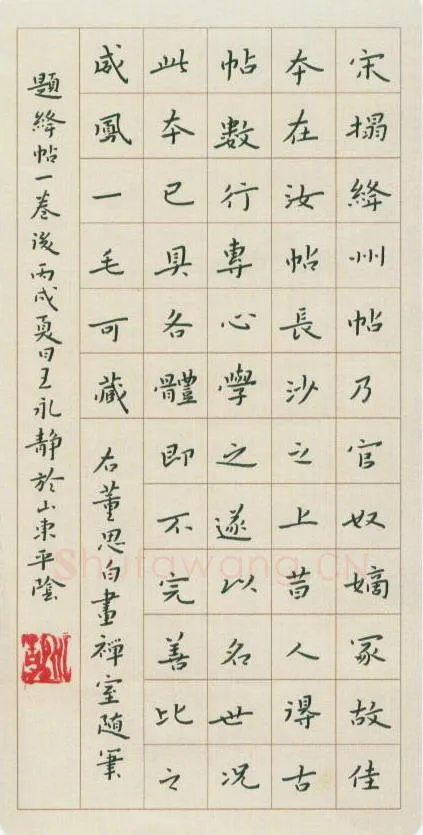 宋搨絳州帖乃官奴嫡冢故佳
本在汝帖長沙之上昔人得古
帖數行專心學之遂以名世況
此本已具各體即不完善比之
威鳳一毛可藏 右董思白畫禪室隨筆
題絳帖一卷後丙戌夏日王永靜於山東平陰
Shufawang.CN